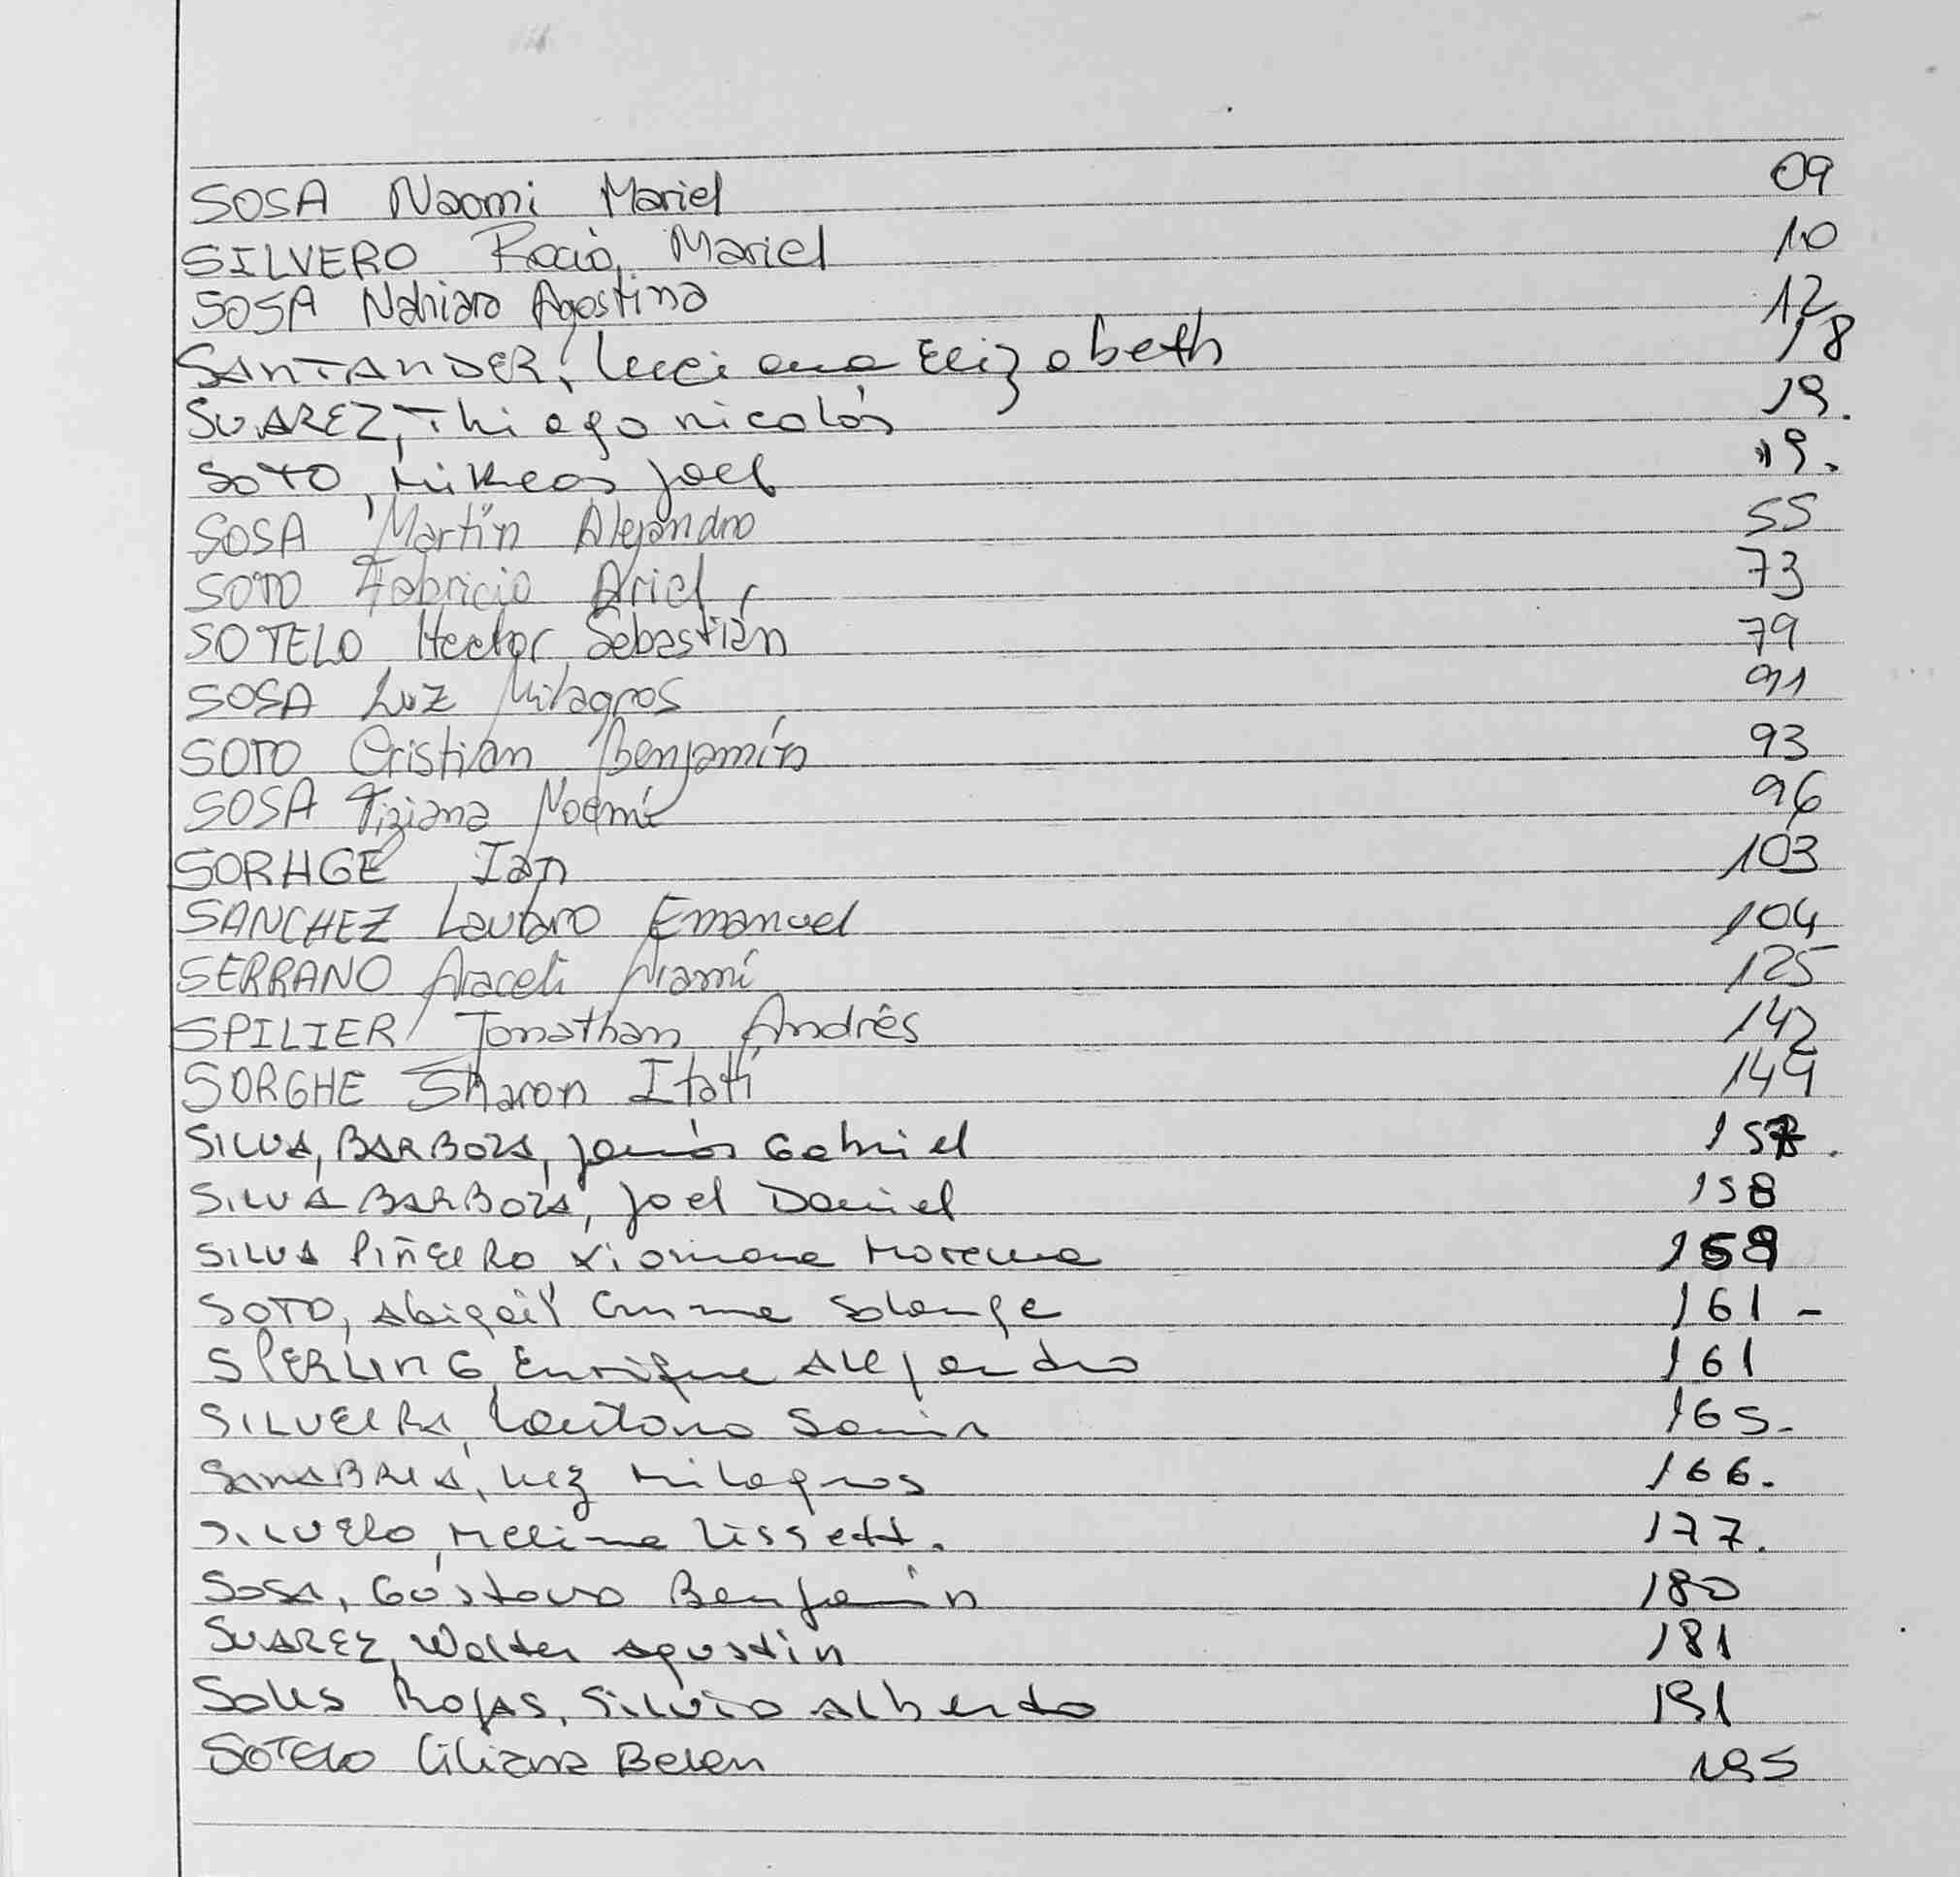 SOSA Naomi Mariel 09
SILVERO Rocio, Mariel 10
SOSA Nahiara Agostina 12
SANTANDER, Luciana Elizabeth 18
SUAREZ, Thiago nicolás 19.
SOTO, Mikeas Joel 19.
SOSA Martín Alejandro 55
SOTO Fabricio Ariel 73
SOTELO Hector Sebastián 79
SOSA Luz Milagros 91
SOTO Cristian Benjamín 93
SOSA Tiziana Noemí 96
SORHGE Ian 103
SANCHEZ Lautaro Emanuel 104
SERRANO Araceli Naomí 125
SPILIER Jonathan Andrés 142
SORGHE Sharon Itatí 149
SILVA, BARBOZA, Gabriel
SILVA BARBOZA, Joel Daniel 158
SILVA PIÑEIRO Xiomara Morena 159
SOTO, Abigail Emma Solange 161 -
SPERLING, Enrique Alejandro 161
SILVEIRA, Lautaro Samir 165-
SANABRIA, Luz Milagros 166.
SILVERO, Melina Lissett. 177.
SOSA, Gustavo Benjamin 180
SUAREZ, Walter Agustin 181
Solis ROJAS, Silvio Alberto
SOTELO Liliana Belen 195